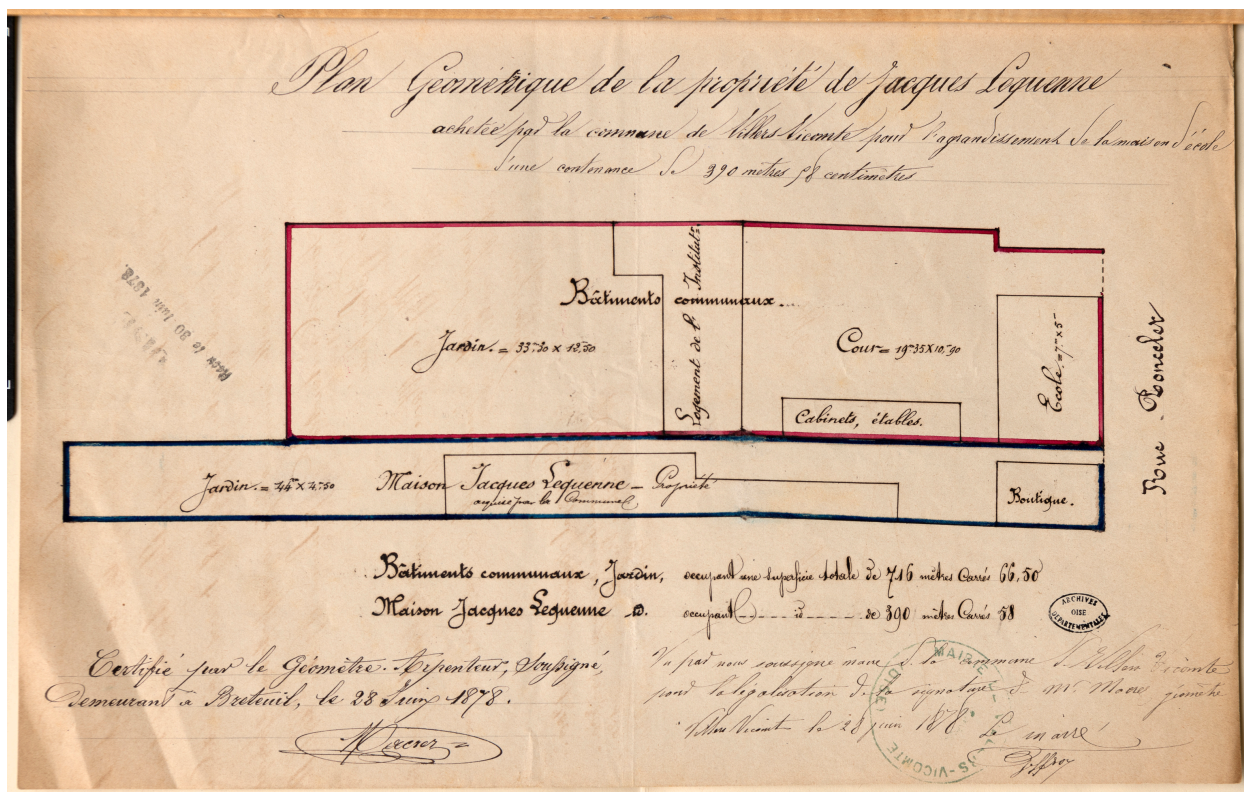 Plan Géométrique de la propriété de Jacques Lequenne
achetée par la commune de Villers Vicomte pour l'agrandissement de la maison d'école
d'une contenance de 390 mètres 58 centimètres
Reçu le 30 Juin 1878.
Bâtiments communaux.
Logement de l'Institutr
Jardin. = 33m30 x 12,50
Cour = 19m35 x 10,90
Ecole, = 7m x 5
Cabinets, étables.
Rue Ronceler
Jardin. = 44m x 4,50
Maison Jacques Lequenne - Propriété
acquise par la Commune
Boutique.
Bâtiments communaux, Jardin, occupant une superficie totale de 716 mètres Carrés 66,50
Maison Jacques Lequenne occupant id de 390 mètres Carrés 58
ARCHIVES
OISE
DÉPARTEMENTALES
Certifié par le Géomètre-Arpenteur, Soussigné,
Demeurant à Breteuil, le 28 Juin 1878.
Vu par nous soussigné maire de la commune de Villers Vicomte
pour la légalisation de la signature de Mr géomètre
Villers Vicomte le 28 juin 1878
Le maire
MAIRIE
VICOMTE
(OISE)